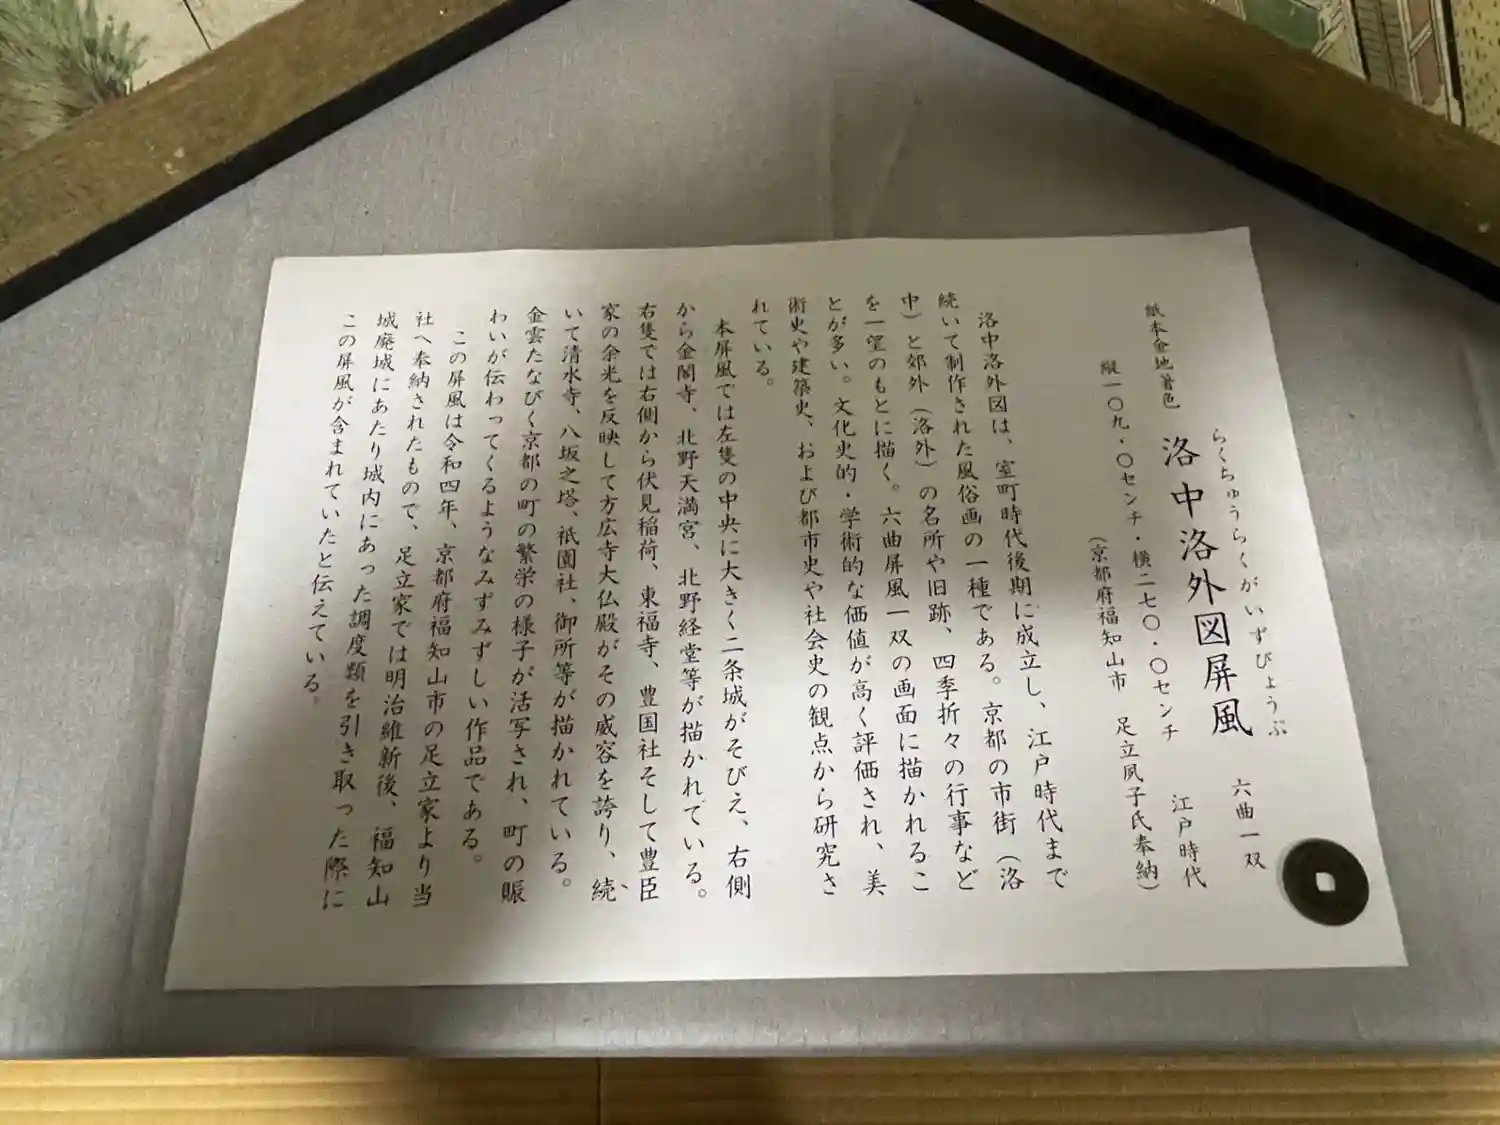 らくちゅうらくがいずびょうぶ
洛中洛外図屏風　六曲一双
紙本金地著色　江戸時代
縦一〇九・〇センチ・横二七〇・〇センチ
（京都府福知山市　足立夙子氏奉納）
洛中洛外図は、室町時代後期に成立し、江戸時代まで
続いて制作された風俗画の一種である。京都の市街（洛
中）と郊外（洛外）の名所や旧跡、四季折々の行事など
を一望のもとに描く。六曲屏風一双の画面に描かれるこ
とが多い。文化史的・学術的な価値が高く評価され、美
術史や建築史、および都市史や社会史の観点から研究さ
れている。
本屏風では左隻の中央に大きく二条城がそびえ、右側
から金閣寺、北野天満宮、北野経堂等が描かれている。
右隻では右側から伏見稲荷、東福寺、豊国社そして豊臣
家の余光を反映して方広寺大仏殿がその威容を誇り、続
いて清水寺、八坂之塔、祇園社、御所等が描かれている。
金雲たなびく京都の町の繁栄の様子が活写され、町の賑
わいが伝わってくるようなみずみずしい作品である。
この屏風は令和四年、京都府福知山市の足立家より当
社へ奉納されたもので、足立家では明治維新後、福知山
城廃城にあたり城内にあった調度類を引き取った際に
この屏風が含まれていたと伝えている。